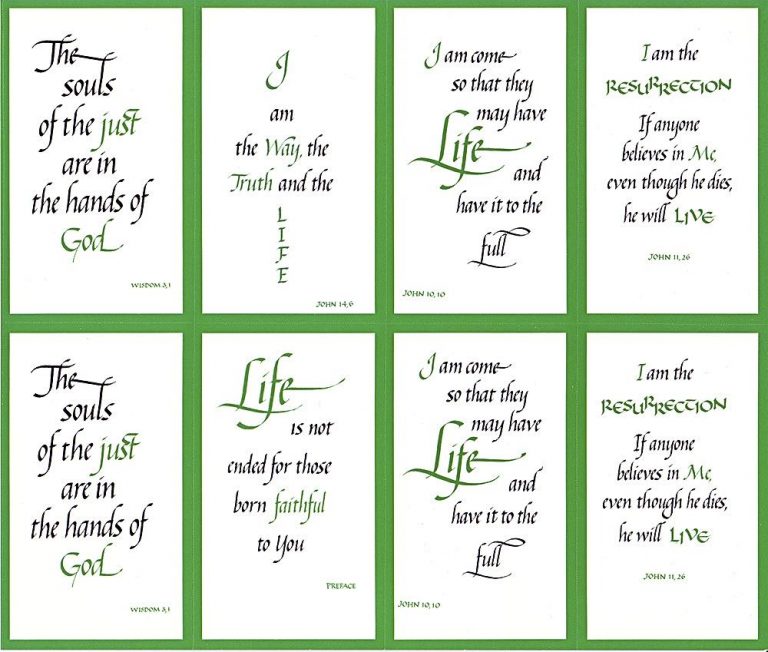 The
souls
of the just
are in
the hands of
God
WISDOM 3,1
I
am
the Way, the
Truth and the
L
I
F
E
JOHN 14,6
I am come
so that they
may have
Life
and
have it to the
full
JOHN 10,10
I am the
RESURRECTION
If anyone
believes in Me,
even though he dies,
he will LIVE
JOHN 11,26
The
souls
of the just
are in
the hands of
God
WISDOM 3,1
Life
is not
ended for those
born faithful
to You
PREFACE
I am come
so that they
may have
Life
and
have it to the
full
JOHN 10,10
I am the
RESURRECTION
If anyone
believes in Me,
even though he dies,
he will LIVE
JOHN 11,26